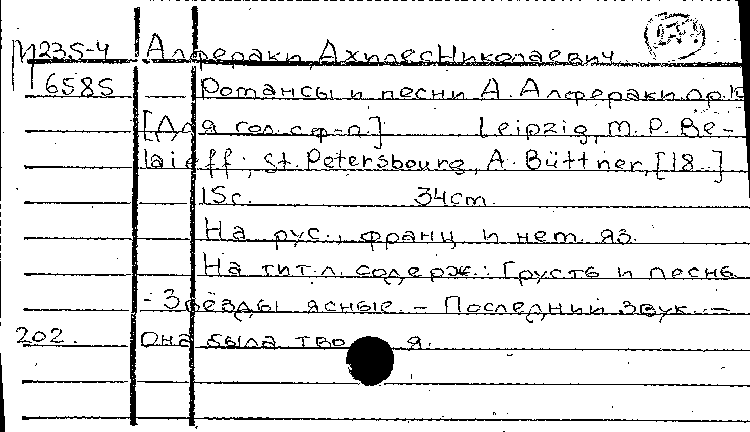 М235-4 Алфераки, Ахиллес Николаевич
6585 Романсы и песни А. Алфераки. ор. 10
[Для гол. с ф-п.] Leipzig, M. P. Be-
laieff; St. Petersbourg, A. Büttner, [18..]
15с. 34cm.
На рус., франц. и нем. яз.
На тит. л. содерж.: Грусть и песнь
- Звёзды ясные. - Последний звук. -
202. она была тво я.